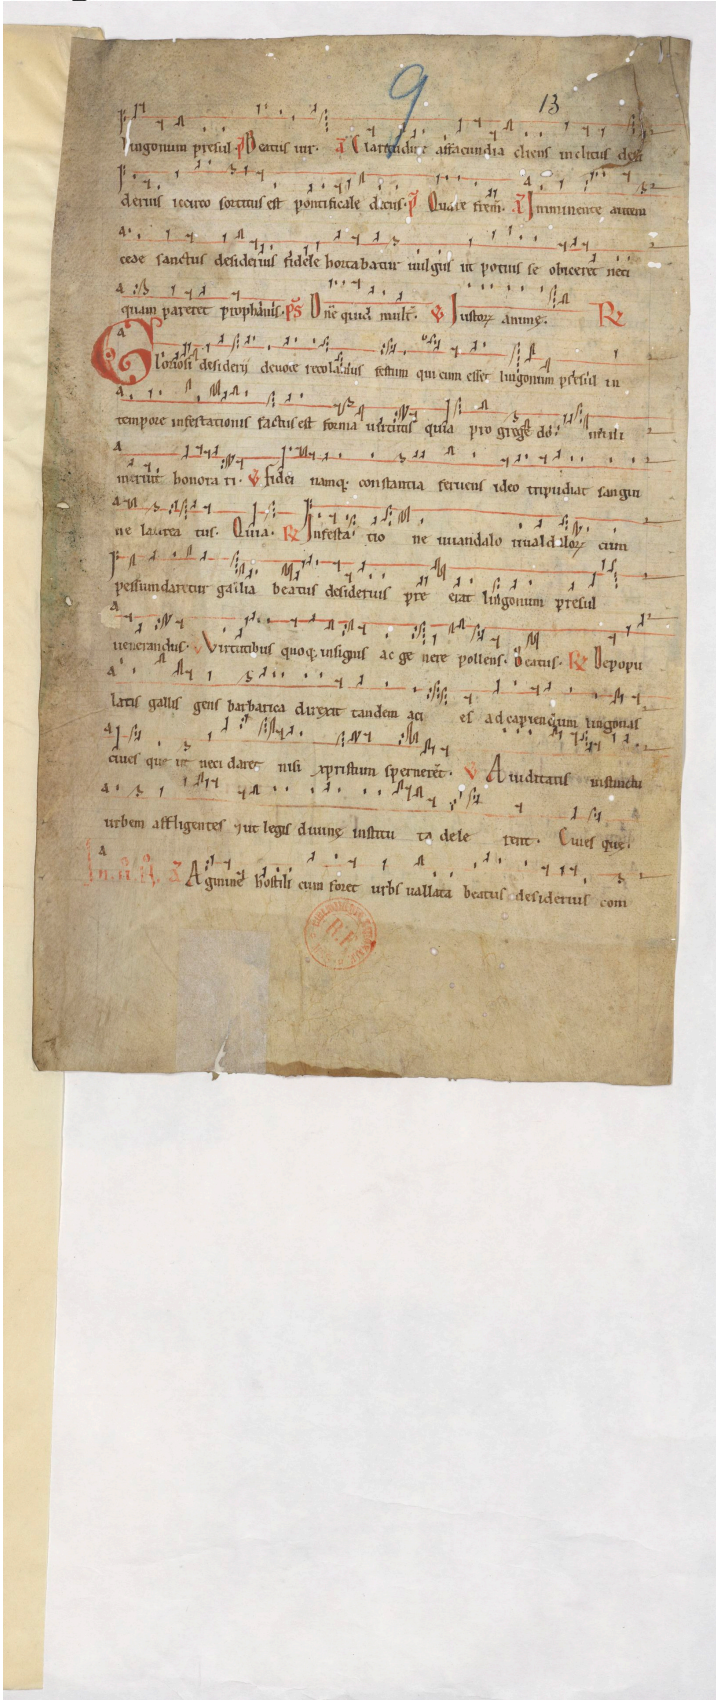 9
13
lingonum presul. p Beatus uir. a Claritudine ac facundia cliens inclitus desi
derius iccirco sortitus est pontificale decus. p Quare frem̄. a Imminente autem
cede sanctus desiderius fidele hortabatur uulgus ut potius se obiceret neci
quam pareret prophanis. ps Dn̄e quid mult̄. V Iustorꝝ animę. R
Gloriosi desiderij deuote recolamus festum qui cum esset lingonum presul in
tempore infestationis factus est forma uirtutis quia pro grege do mini
meruit honora ri. V fidei namq; constantia feruens ideo tripudiat sangui
ne laurea tus. Quia. R Infesta tio ne uuandalo rum
pessundaretur gallia beatus desiderius pre erat lingonum presul
uenerandus. V Virtutibus quoq; insignis ac ge nere pollens. Beatus. R Depopu
latis gallis gens barbarica direxit tandem aci es ad capiendum lingonas
ciues que ut neci daret nisi xpristum sperneret. V Auiditatis instinctu
urbem affligentes ut legis diuinę institu ta dele rent. Ciues que.
A Agmine hostili cum foret urbs uallata beatus desiderius com
B.F.